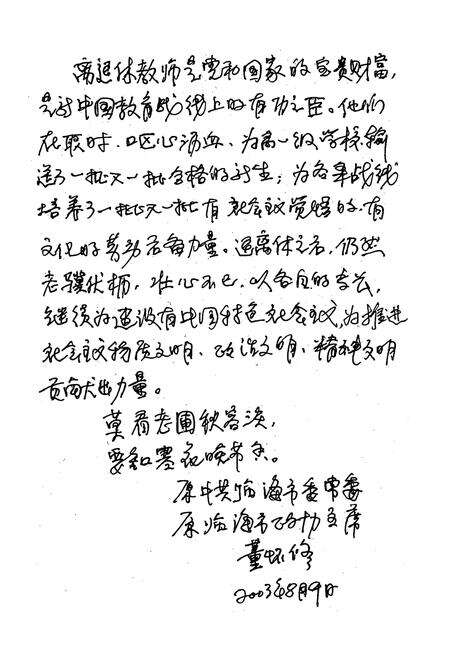 离退休教师是党和国家的宝贵财富,
是新中国教育战线上的有功之臣。他们
在职时、呕心沥血、为高一级学校输
送了一批又一批合格的新生;为各条战线
培养了一批又一批有社会主义觉悟的、有
文化的劳动后备力量。退离休之后,仍然
老骥伏枥,壮心不已,以各自的专长,
继续为建设有中国特色社会主义,为推进
社会主义物质文明、政治文明、精神文明
贡献出力量。
莫看老圃秋容淡,
要知寒花晚节香。
原中共临海市委常委
原临海市政协主席
董怀修
2003年8月9日